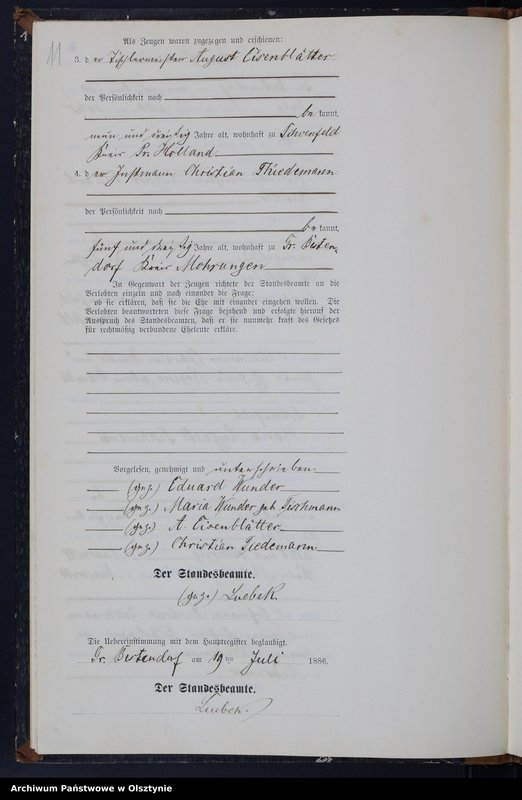 11
Als Zeugen waren zugezogen und erschienen:
3. d er Tischlermeister August Eisenblätter
der Persönlichkeit nach
be kannt,
neun und dreißig Jahre alt, wohnhaft zu Schoenfeld
Kreis Pr. Holland
4. d er Instmann Christian Thiedemann
der Persönlichkeit nach
be kannt,
fünf und dreißig Jahre alt, wohnhaft zu Gr. Besten-
dorf Kreis Mohrungen
In Gegenwart der Zeugen richtete der Standesbeamte an die
Verlobten einzeln und nach einander die Frage:
ob sie erklären, daß sie die Ehe mit einander eingehen wollen. Die
Verlobten beantworteten diese Frage bejahend und erfolgte hierauf der
Ausspruch des Standesbeamten, daß er sie nunmehr kraft des Gesetzes
für rechtmäßig verbundene Eheleute erkläre.
Vorgelesen, genehmigt und unterschrieben.
(gez.) Eduard Wunder
(gez.) Maria Wunder geb. Tischmann
(gez.) A. Eisenblätter
(gez.) Christian Tiedemann
Der Standesbeamte.
(gez.) Luebek.
Die Uebereinstimmung mit dem Hauptregister beglaubigt.
Gr. Bestendorf am 19 ten Juli 1886.
Der Standesbeamte.
Luebek.
Archiwum Państwowe w Olsztynie